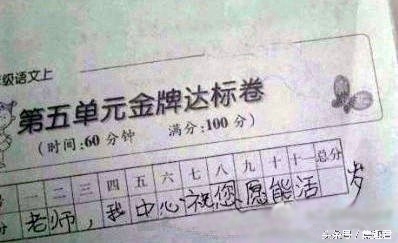 级语文上
第五单元金牌达标卷
(时间:60分钟 满分:100分)
一 二 三 四 五 六 七 八 九 十 十一 总分
分 老师，我中心祝您愿能活 岁
头条号 / 最视君